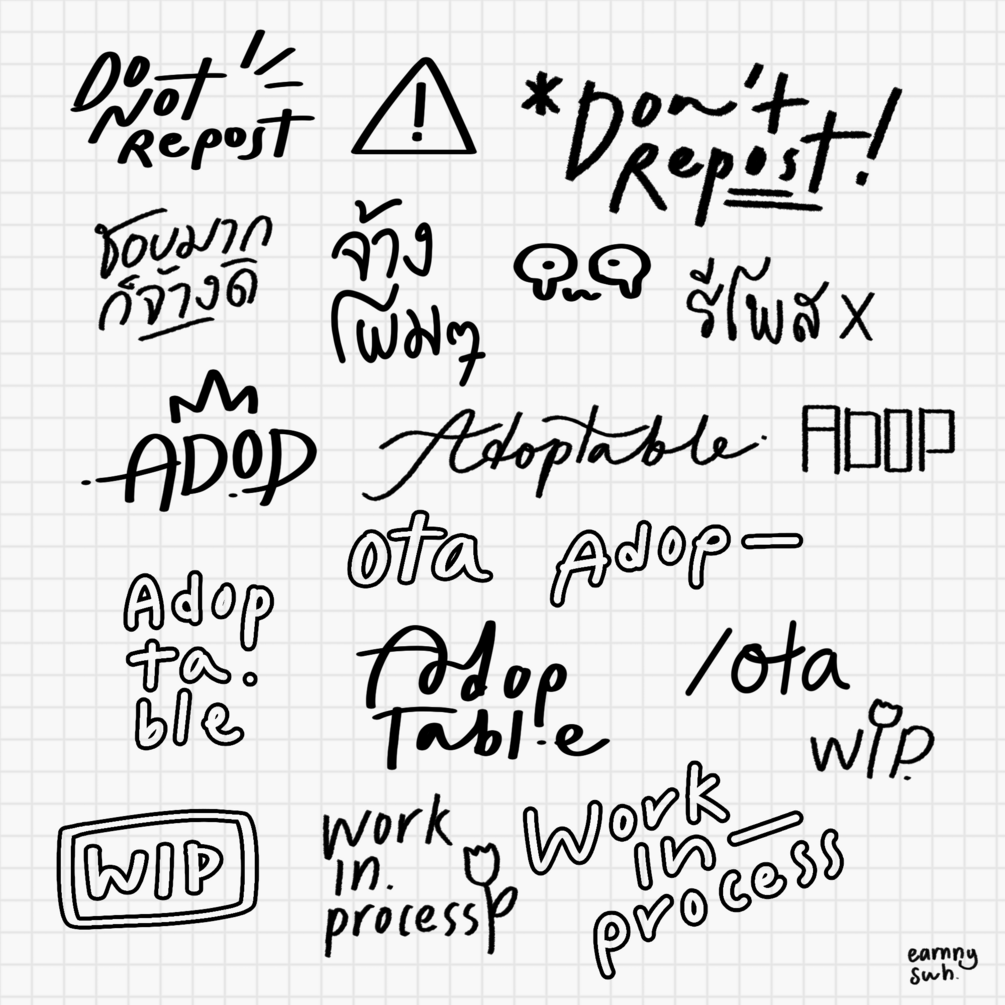 Do
Not
Repost
!
*Don't
Repost!
ชอบมาก
ก็จ้างดิ
จ้าง
โผมๆ
รีโพส X
ADOP
Adoptable.
ADOP
ota
Adop—
Adop
ta.
ble
Adop
Table
/ota
WIP.
WIP
Work
in.
process
Work
in—
process
earnny
swh.